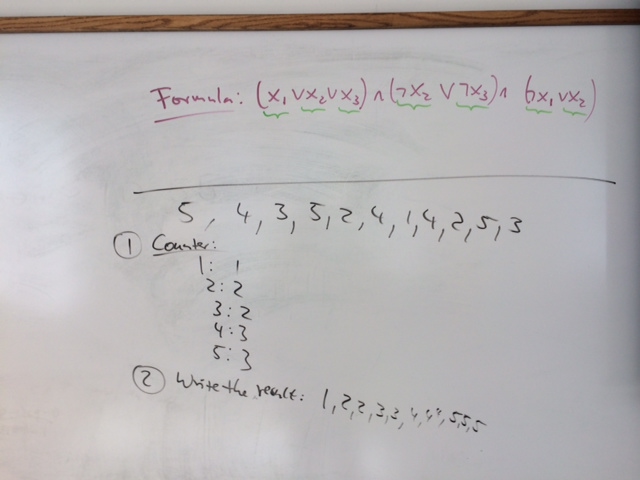 Formula: (x₁ ∨ x₂ ∨ x₃) ∧ (¬x₂ ∨ ¬x₃) ∧ (¬x₁ ∨ x₂)
5, 4, 3, 5, 2, 4, 1, 4, 2, 5, 3
① Counter:
1: 1
2: 2
3: 2
4: 3
5: 3
② Write the result: 1, 2, 2, 3, 3, 4, 4, 4, 5, 5, 5